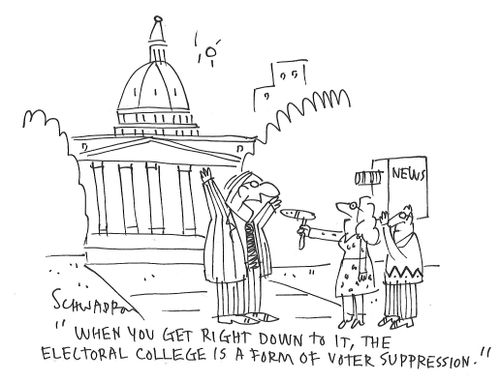 NEWS
SCHWADRON
"WHEN YOU GET RIGHT DOWN TO IT, THE
ELECTORAL COLLEGE IS A FORM OF VOTER SUPPRESSION."